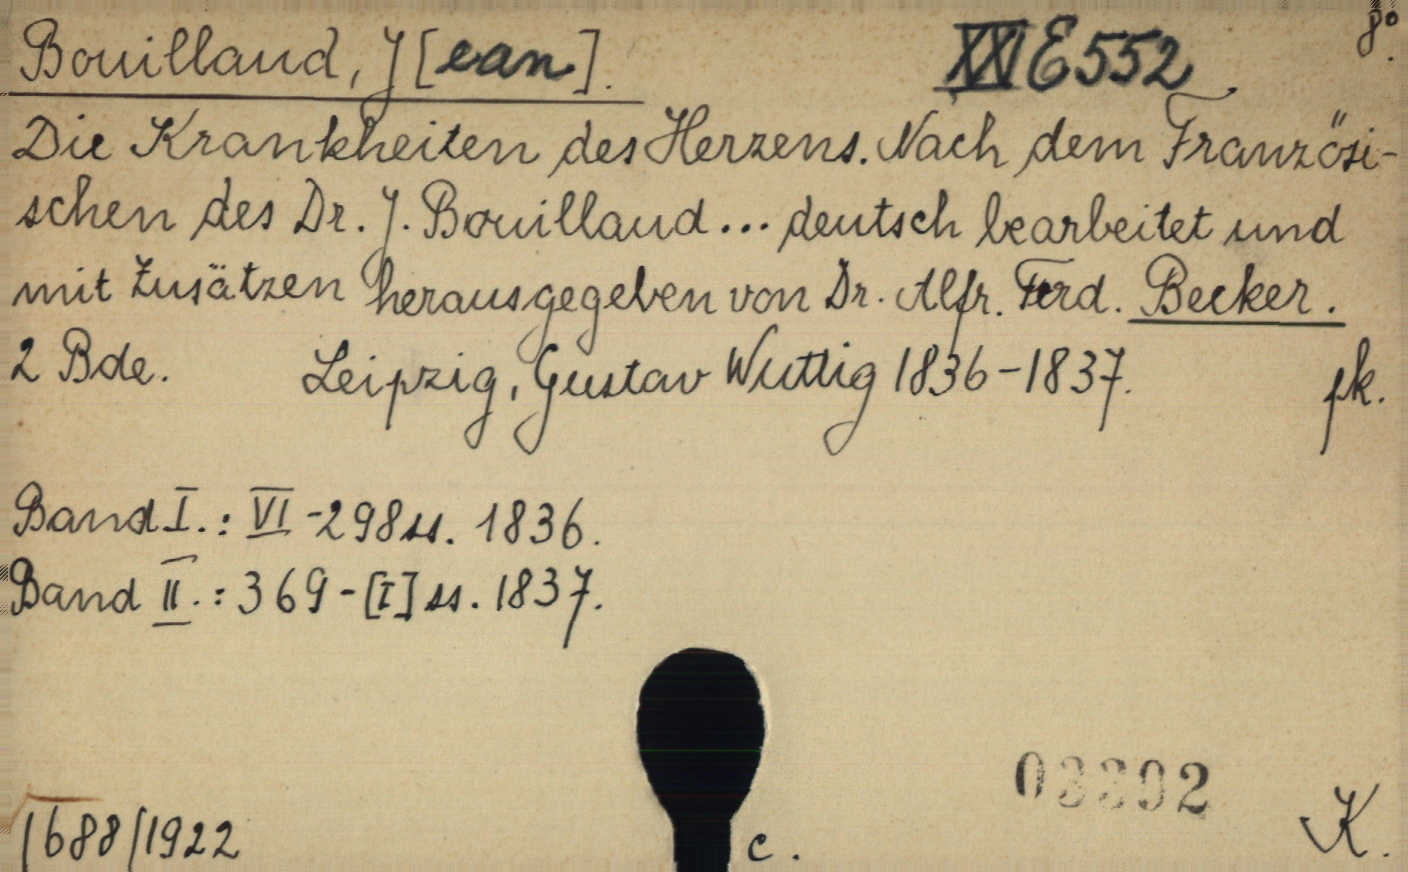 Bouillaud, J[ean]. XXI E 552 8°.
Die Krankheiten des Herzens. Nach dem Französi-
schen des Dr. J. Bouillaud... deutsch bearbeitet und
mit Zusätzen herausgegeben von Dr. Alfr. Ferd. Becker.
2 Bde. Leipzig, Gustav Wuttig 1836-1837. pk.
Band I.: VI-298 ss. 1836.
Band II.: 369-[I] ss. 1837.
03392
1688/1922 c. K.